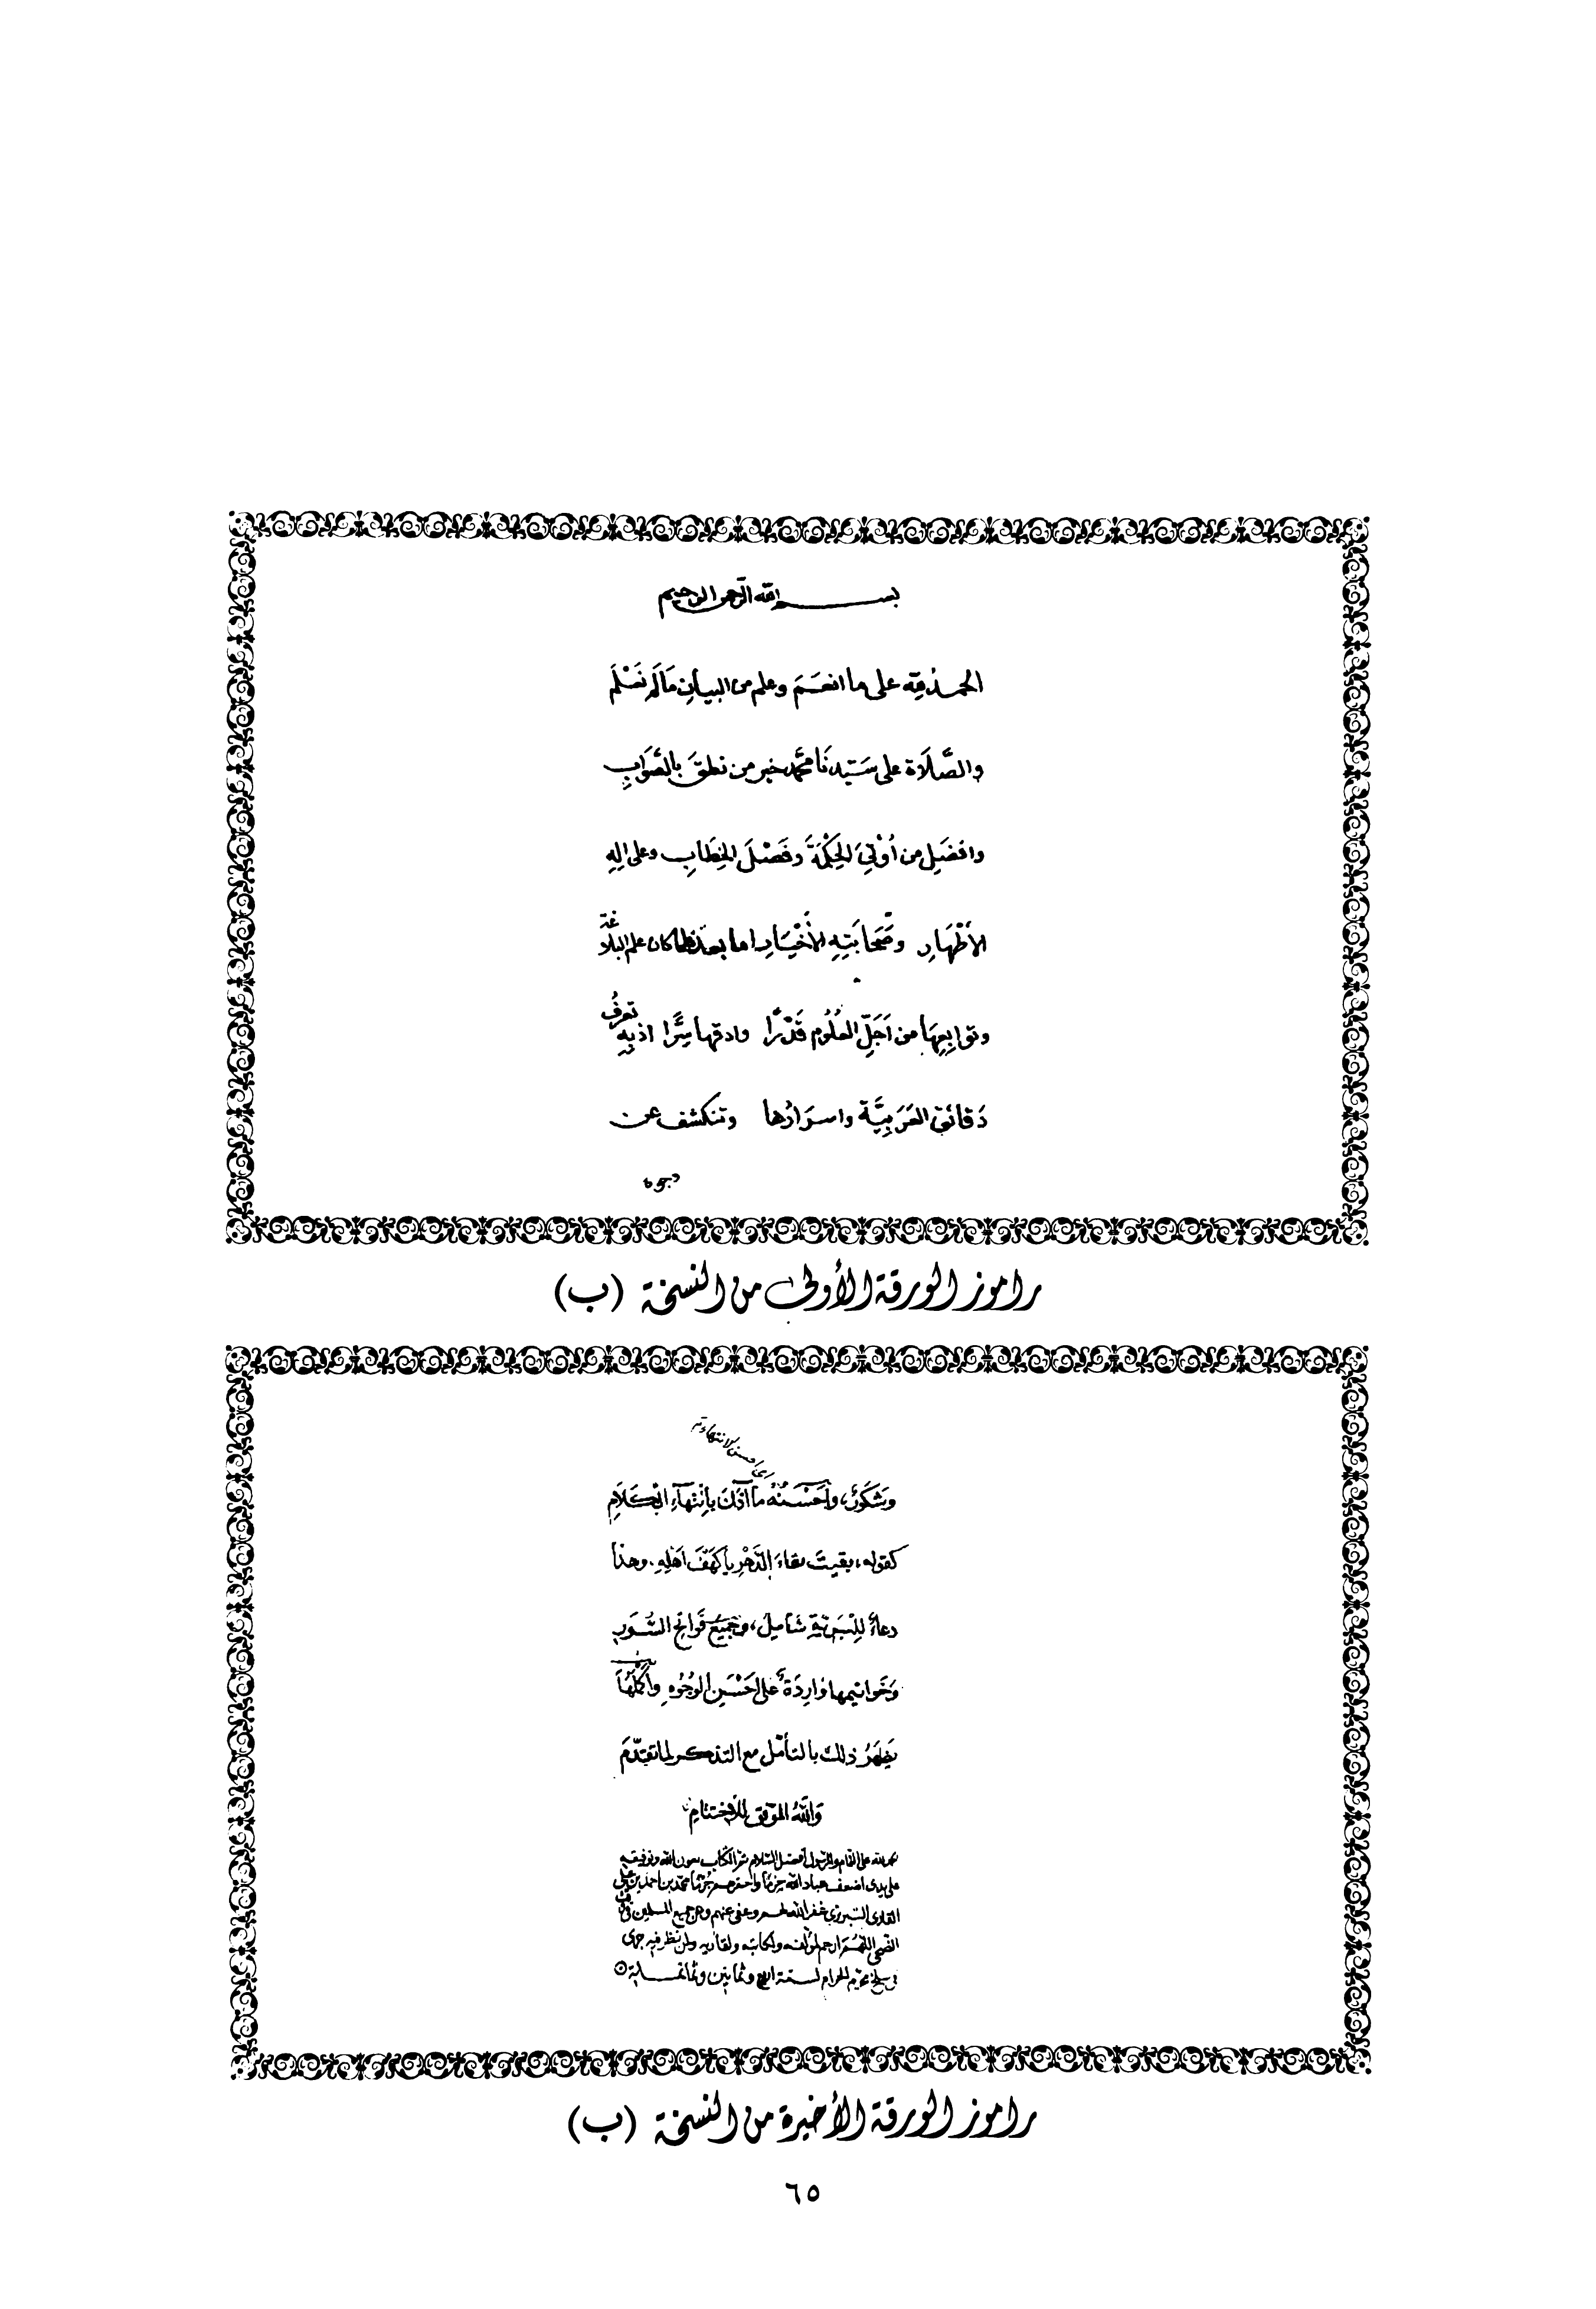 بسم الله الرحمن الرحيم
الحمد لله على ما انعَمَ وعلم من البيانِ مَا لَمْ نَعْلَم
والصَّلَاة على سَيّدنَا محمَّد خير من نطقَ بالصَّوَابِ
وافضَلِ من أُوْتِيَ الحِكْمَةَ وفَصْلَ الخِطَابِ وعلى الِهِ
الأَطْهَارِ وصَحَابَتِهِ الأَخْيَارِ اما بعد فلما كان علم البلاغة
وتوابِعِهَا من اَجَلِّ العُلُوم قَدْرًا وادقها سِرًّا اذ بِهِ تعرفُ
دَقائق العَرَبِيَّة واسرَارُها وتنكشف عن
وجوه
راموز الورقة الأولى من النسخة (ب)
اى حسن الانتهاء
وشكورُ، وأحسَنُهُ ما آذَنَ بِانْتِهَآءِ الكَلَامِ
كقوله، بقيتَ بقاءَ الدَّهْرِ يا كَهْفَ اَهْلِهِ. وهذا
دعاءٌ لِلْبَريَّةِ شَامِلُ، وجَمِيعُ فَوَاتِحِ السُّوَرِ
وَخَواتِيمها وَارِدَةٌ على اَحْسَنِ الوُجُوهِ وأَكْمَلِهَا
يَظهَرُ ذلك بالتأمّل مع التذكر لما تقدّمَ
وَاللهُ الموَفق للاختتامِ
لحمد لله على التمام وللرسول أفضل السلام تم الكتاب بعون الله وتوفيقه
على يدى اضعف عباد الله جِرمًا واحقرهم جُرْمًا محمّد بن احمد بن على
القارى التبريزى غفر الله لهم وعفى عنهم وعن جميع المسلمين فى وقت
الضحى اللهُمّ ارحم لمؤلفه ولكاتبه ولقاريه ولمن نظر فيه جرى
فى سلخ محرّم الحرام لسنة اربع وثمانين وثمانمـاية
راموز الورقة الأخيرة من النسخة (ب)
٦٥